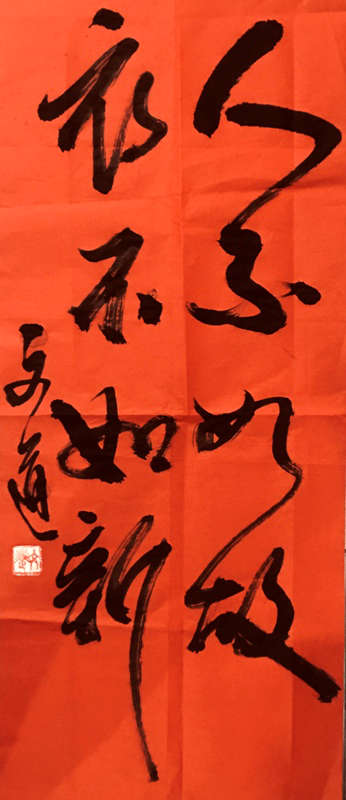 人不如故
衣不如新
文道